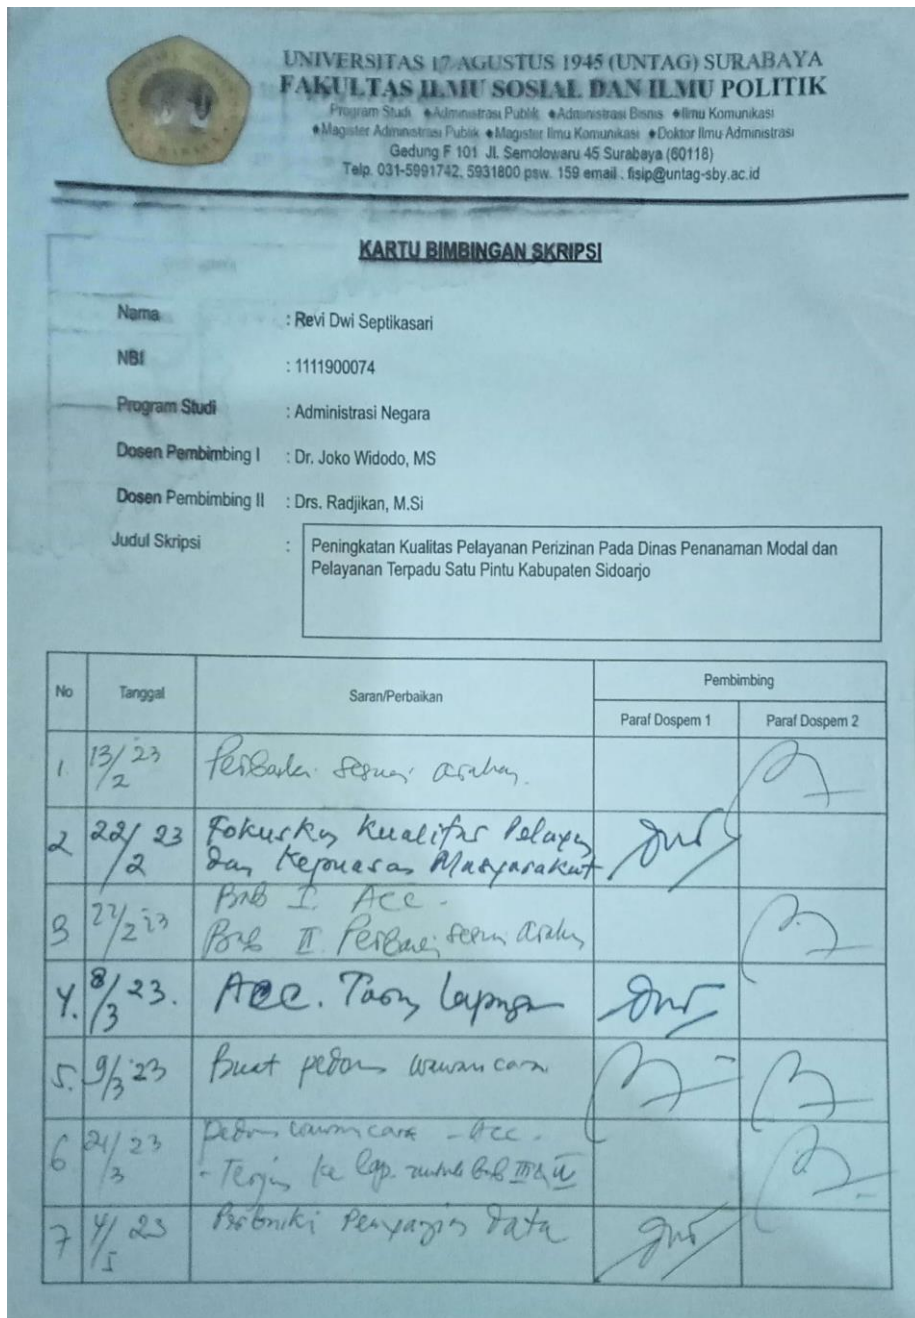 UNIVERSITAS 17 AGUSTUS 1945 (UNTAG) SURABAYA
FAKULTAS ILMU SOSIAL DAN ILMU POLITIK
Program Studi ♦Administrasi Publik ♦Administrasi Bisnis ♦Ilmu Komunikasi
♦Magister Administrasi Publik ♦Magister Ilmu Komunikasi ♦Doktor Ilmu Administrasi
Gedung F 101 Jl. Semolowaru 45 Surabaya (60118)
Telp. 031-5991742, 5931800 psw. 159 email : fisip@untag-sby.ac.id
KARTU BIMBINGAN SKRIPSI
Nama : Revi Dwi Septikasari
NBI : 1111900074
Program Studi : Administrasi Negara
Dosen Pembimbing I : Dr. Joko Widodo, MS
Dosen Pembimbing II : Drs. Radjikan, M.Si
Judul Skripsi : Peningkatan Kualitas Pelayanan Perizinan Pada Dinas Penanaman Modal dan
Pelayanan Terpadu Satu Pintu Kabupaten Sidoarjo
No Tanggal Saran/Perbaikan Pembimbing
Paraf Dospem 1 Paraf Dospem 2
1. 13/2 '23 sesuai arahan.
2 22/2 23 Kualitas
dan Kepuasan Masyarakat
3 23 Bab I. Acc.
Bab II. sesuai arahan
4. 8/3 23. Acc.
5. 9/3 23 Buat wawancara
6 /3 23 wawancara - Acc.
- ke lap. bab
7 4/5 23 data